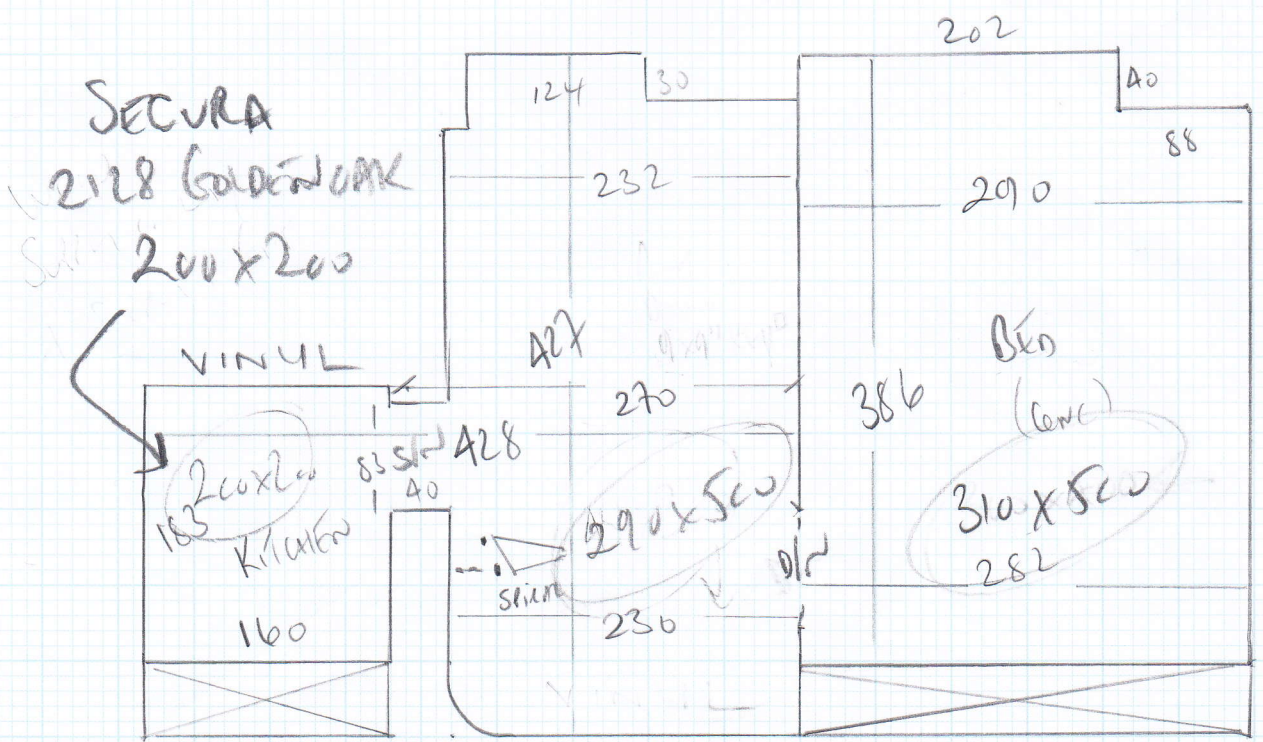 SECURA
2128 GOLDEN OAK
200x200
VINYL
200x200
183
KITCHEN
160
83
40
124
30
232
427
270
428
290x500
230
D/W
202
40
88
290
BED
386
310x500
282